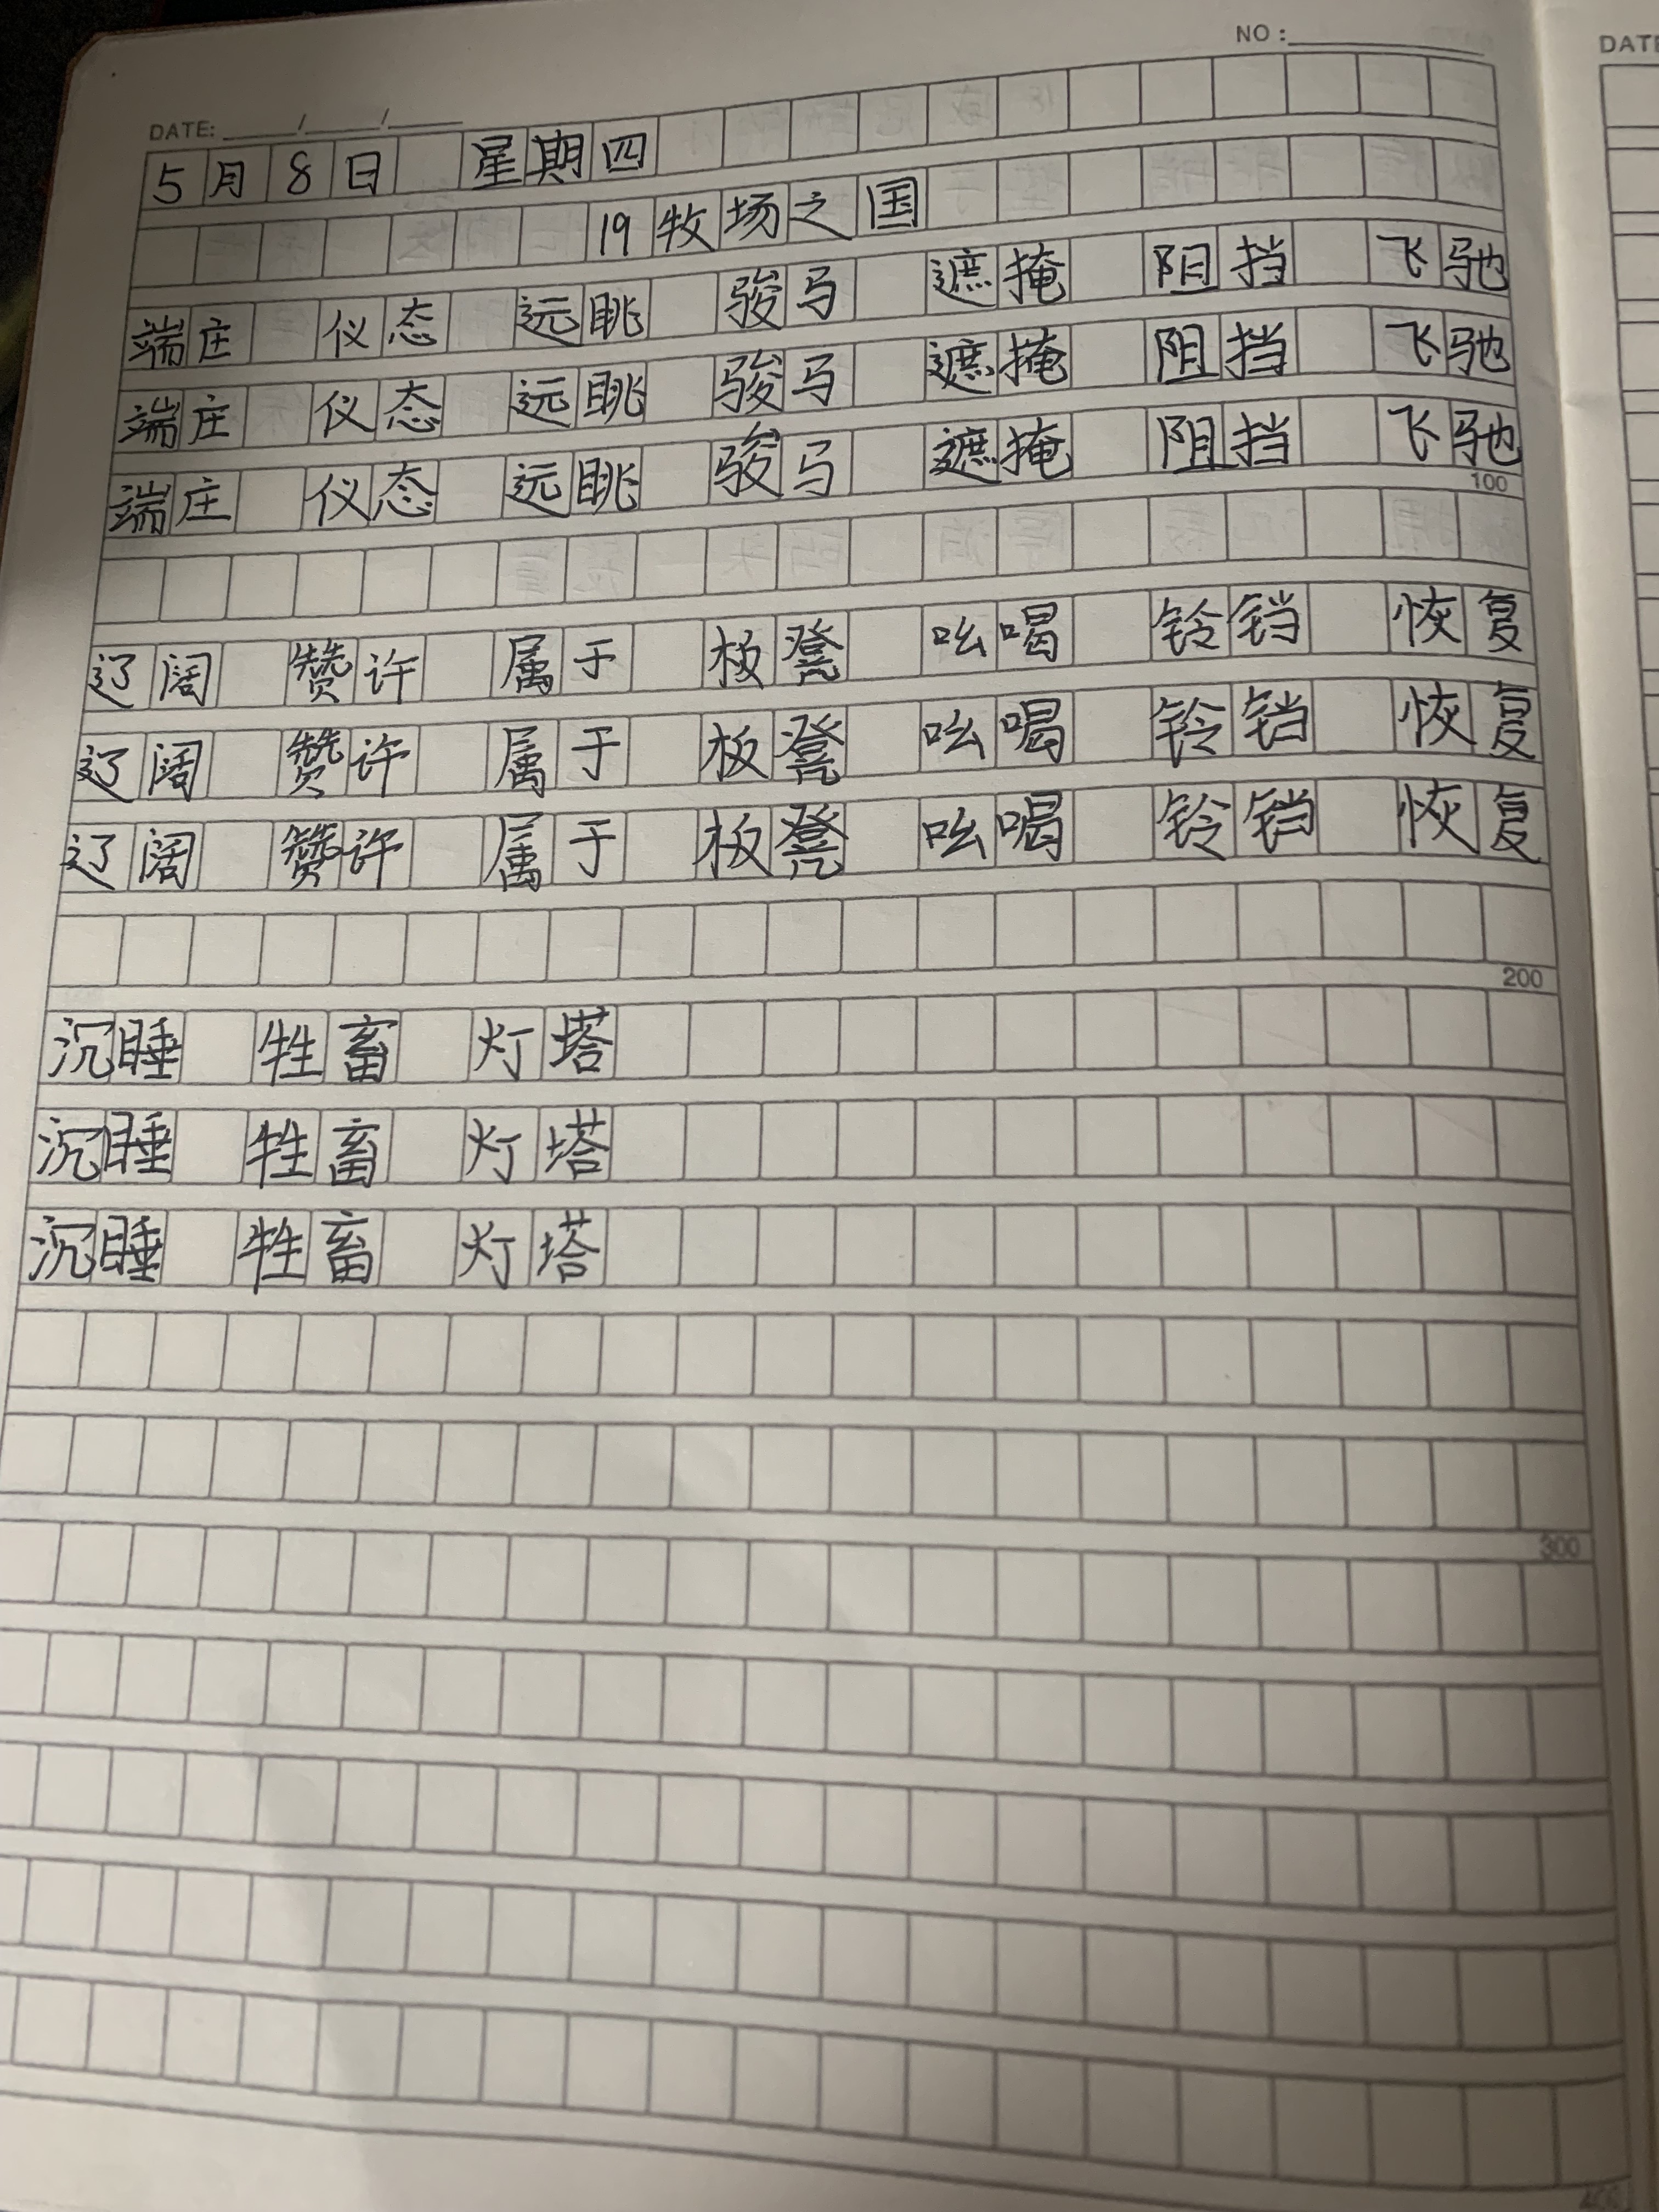 NO:
DATE: / /
DATE
5月8日 星期四
19牧场之国
端庄 仪态 远眺 骏马 遮掩 阻挡 飞驰
端庄 仪态 远眺 骏马 遮掩 阻挡 飞驰
端庄 仪态 远眺 骏马 遮掩 阻挡 飞驰
100
辽阔 赞许 属于 板凳 吆喝 铃铛 恢复
辽阔 赞许 属于 板凳 吆喝 铃铛 恢复
辽阔 赞许 属于 板凳 吆喝 铃铛 恢复
200
沉睡 牲畜 灯塔
沉睡 牲畜 灯塔
沉睡 牲畜 灯塔
300
400